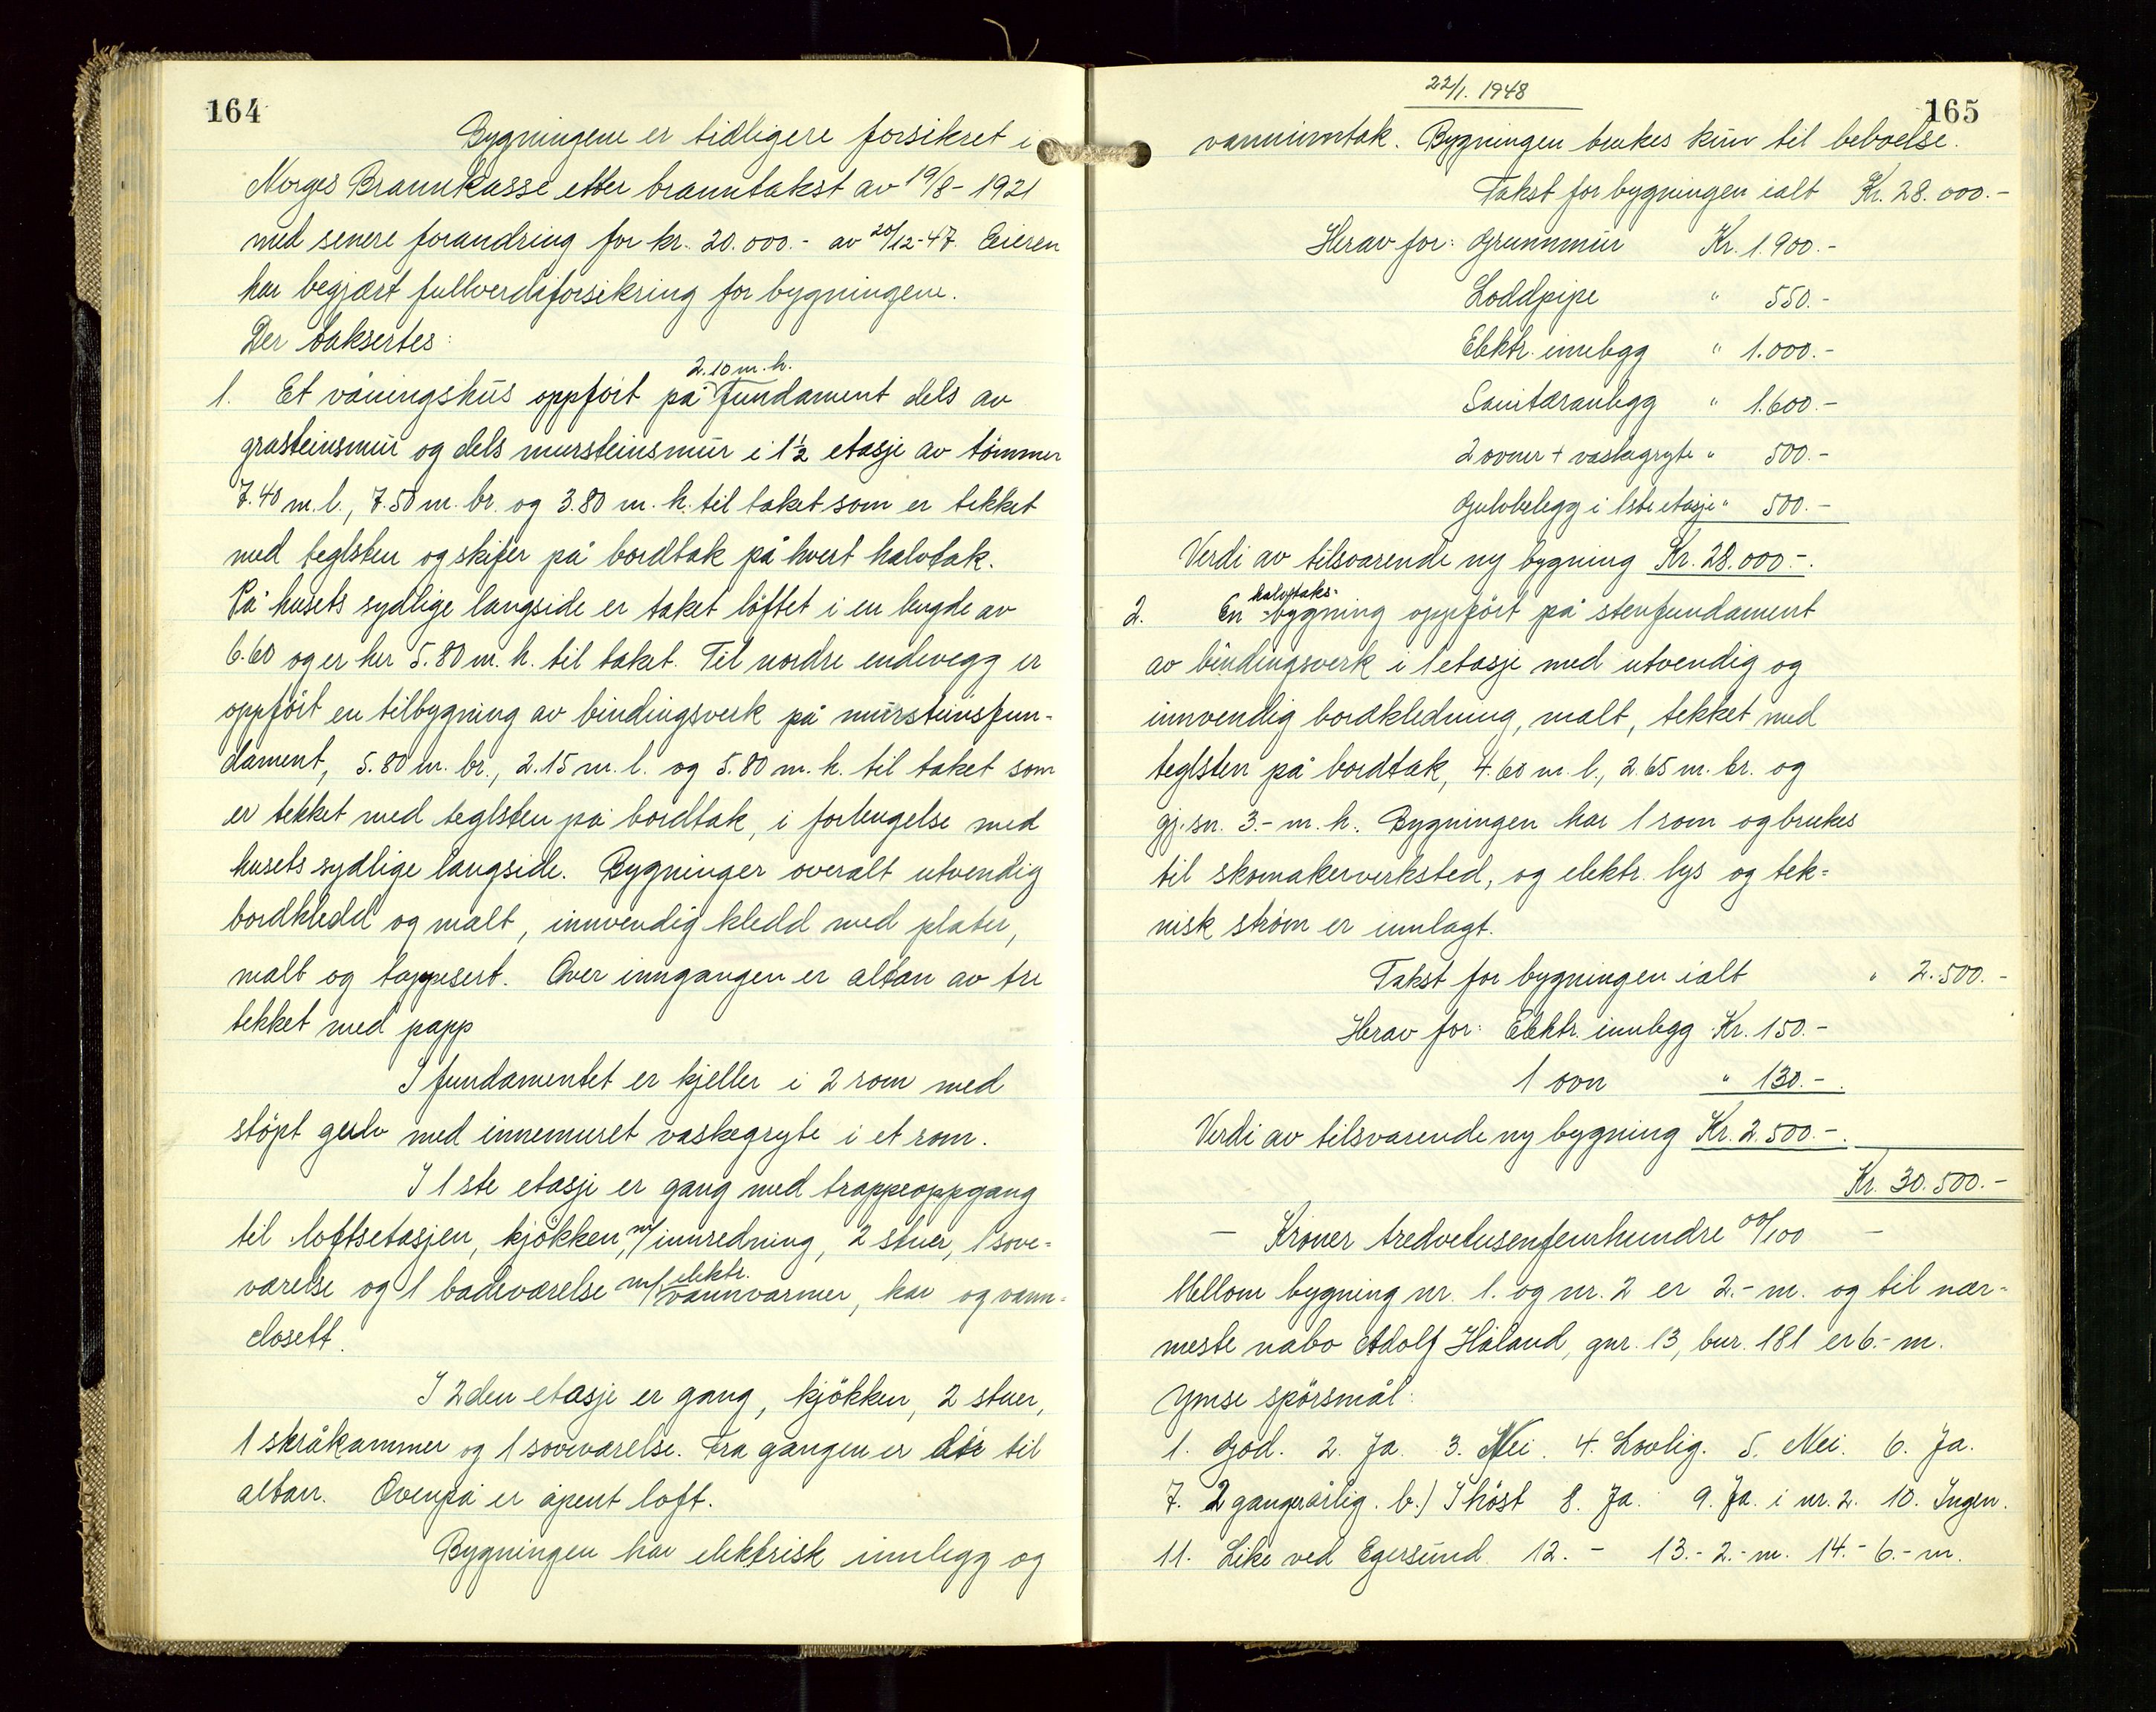 164
Bygningene er tidligere forsikret i
Norges Brannkasse etter branntakst av 19/8-1921
med senere forandring for kr. 20.000.- av 20/12-47. Eieren
har begjært fullverdiforsikring for bygningene.
Der taksertes:
2.10 m.h.
1. Et våningshus oppført på fundament dels av
gråsteinsmur og dels mursteinsmur i 1½ etasje av tömmer
7.40 m.l., 7.50 m. br. og 3.80 m.h. til taket som er tekket
med teglsten og skifer på bordtak på hvert halvtak.
På husets sydlige langside er taket löftet i en lengde av
6.60 og er her 5.80 m.h. til taket. Til nordre endevegg er
oppfört en tilbygning av bindingsverk på mursteinsfun-
dament, 5.80 m. br., 2.15 m.l. og 5.80 m.h. til taket som
er tekket med teglsten på bordtak, i forlengelse med
husets sydlige langside. Bygninger overalt utvendig
bordkledd og malt, innvendig kledd med plater,
malt og tappesert. Over inngangen er altan av tre
tekket med papp
I fundamentet er kjeller i 2 rom med
stöpt gulv med innemuret vaskegryte i et rom.
I 1ste etasje er gang med trappeoppgang
til loftsetasjen, kjökken, m/innredning, 2 stuer, 1 sove-
værelse og 1 badeværelse m/elektr. vannvarmer, kar og vann-
closett.
I 2den etasje er gang, kjökken, 2 stuer,
1 skråkammer og 1 soveværelse. Fra gangen er dör til
altan. Ovenpå er åpent loft.
Bygningen har elektrisk innlegg og
22/1. 1948
165
vanninntak. Bygningen brukes kun til beboelse.
Takst for bygningen ialt Kr. 28.000.-
Herav for: Grunnmur Kr. 1.900.-
Loddpipe " 550.-
Elektr. innlegg " 1.000.-
Sanitæranlegg " 1.600.-
2 ovner + vaskegryte " 500.-
Gulvbelegg i 1ste etasje " 500.-
Verdi av tilsvarende ny bygning Kr. 28.000.-.
halvtaks-
2. En -bygning oppfört på stenfundament
av bindingsverk i 1 etasje med utvendig og
innvendig bordkledning, malt, tekket med
teglsten på bordtak, 4.60 m.l., 2.65 m. br. og
gj.sn. 3.- m.h. Bygningen har 1 rom og brukes
til skomakerverksted, og elektr. lys og tek-
nisk ström er innlagt.
Takst for bygningen ialt " 2.500.-
Herav for: Elektr. innlegg Kr. 150.-
1 ovn " 130.-.
Verdi av tilsvarende ny bygning Kr. 2.500.-.
Kr. 30.500.-
- Kroner tredvetusenfemhundre 00/100 -
Mellom bygning nr. 1. og nr. 2 er 2.- m. og til nær-
meste nabo Adolf Håland, gnr. 13, bnr. 181 er 6.- m.
Ymse spörsmål:
1. God. 2. Ja. 3. Nei. 4. Lovlig. 5. Nei. 6. Ja.
7. 2 ganger årlig. b.) I höst 8. Ja. 9. Ja. i nr. 2. 10. Ingen.
11. Like ved Egersund. 12. - 13.- 2.- m. 14.- 6.- m.